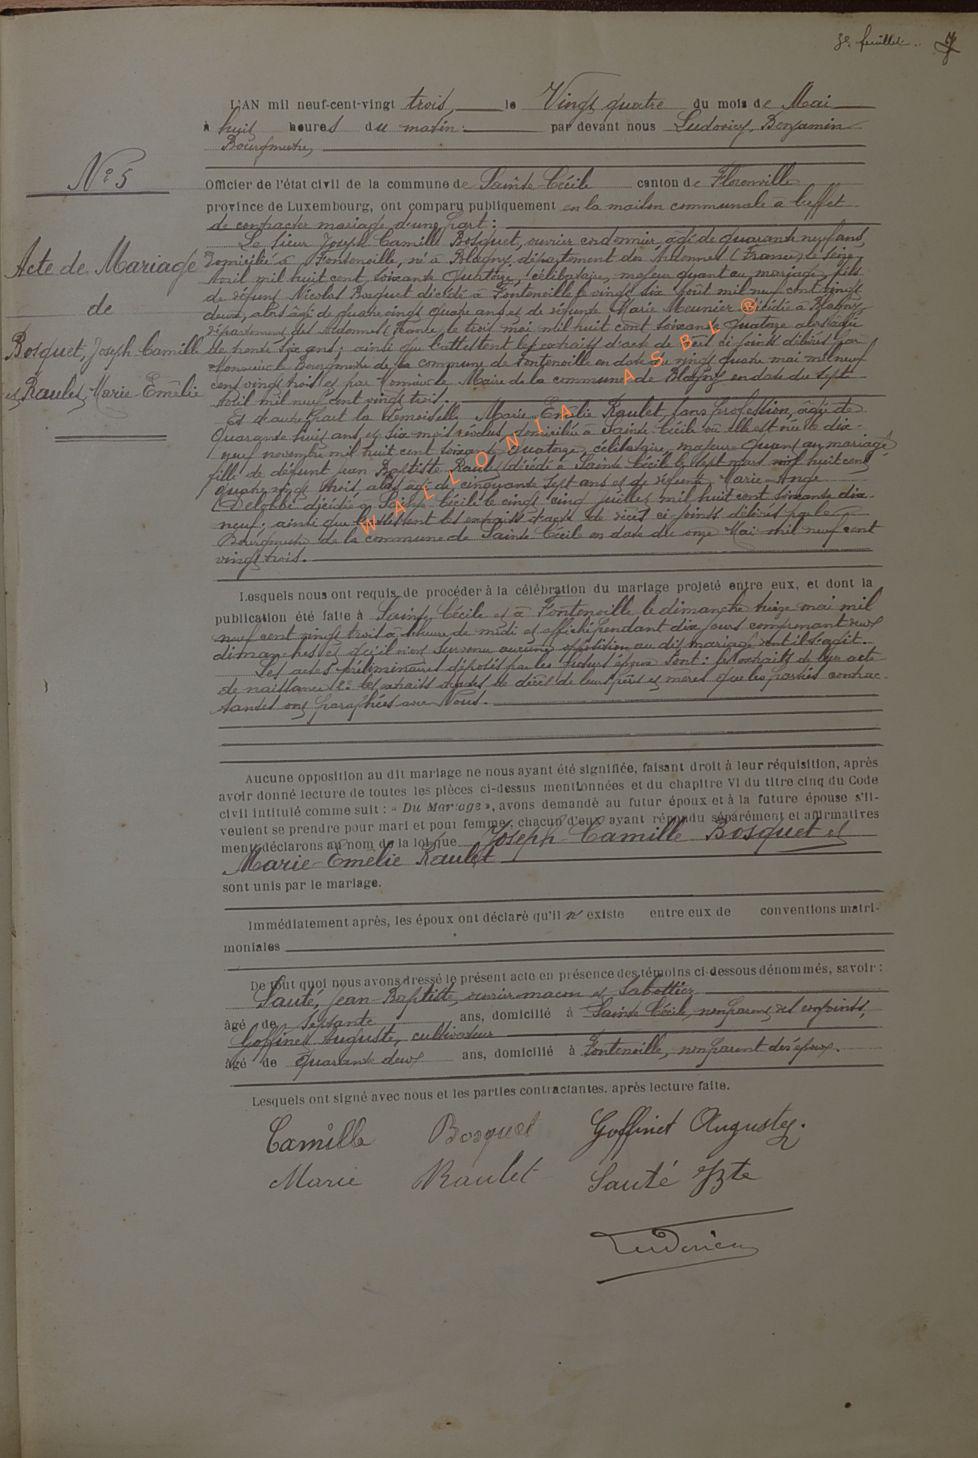 3e feuillet. 7
L'AN mil neuf-cent-vingt trois, le Vingt quatre du mois de Mai
à huit heures du matin. par devant nous Benjamin
Bourgmestre,
N° 5
Officier de l'état civil de la commune de Sainte Cécile canton de Florenville
province de Luxembourg, ont comparu publiquement en la maison communale à l'effet
de contracter mariage d'une part:
Acte de Mariage
de
Bosquet, Joseph Camille
et Raulet, Marie-Emélie
Le sieur Joseph Camille Bosquet, ouvrier cordonnier, agé de quarante neuf ans,
domicilié à Fontenoille, né à Blagny, département des Ardennes (France) le seize
Avril mil huit cent soixante quatorze, célibataire, majeur quant au mariage, fils
de défunt Nicolas Bosquet décédé à Fontenoille le vingt six Août mil neuf cent vingt
deux, alors âgé de quatre vingt quatre ans et de défunte Marie Meunier décédée à Blagny
département des Ardennes (France, le trois mai mil huit cent soixante quatorze alors âgée
de trente six ans; ainsi que l'attestent les extraits d'acte de ci joints délivrés par
Monsieur le Bourgmestre de la commune de Fontenoille en date du vingt quatre mai mil neuf
cent vingt trois et par Monsieur le Maire de la commune de Blagny en date du sept
Avril mil neuf cent vingt trois.
Et d'autre part la Demoiselle Marie Emélie Raulet, sans profession, âgée de
Quarante huit ans et six mois révolus, domiciliée à Sainte Cécile où elle est née le dix-
neuf novembre mil huit cent soixante quatorze, célibataire, majeure quant au mariage
fille de défunt Jean Baptiste Raulet décédé à Sainte Cécile le sept mars mil huit cent
quatre vingt trois, alors agé de cinquante sept ans et de défunte Marie Ange
Delobbe décédée à Sainte Cécile le vingt cinq juillet mil huit cent soixante dix
neuf; ainsi que l'attestent les extraits d'acte de décès ci joints délivrés par le
Bourgmestre de la commune de Sainte Cécile en date du onze Mai mil neuf cent
vingt trois.
Lesquels nous ont requis de procéder à la célébration du mariage projeté entre eux, et dont la
publication été faite à Sainte Cécile et à Fontenoille le dimanche treize mai mil
neuf cent vingt trois à l'heure de midi et affiché pendant dix jours comprenant deux
dimanches et qu'il n'est survenu aucune opposition au dit mariage dont il s'agit.
Les actes préliminaires déposés par les futurs époux sont: les extraits de leur acte
de naissance 2° les extraits d'actes de décès de leurs pères et mères que les parties contrac-
tantes ont paraphées avec Nous.
Aucune opposition au dit mariage ne nous ayant été signifiée, faisant droit à leur réquisition, après
avoir donné lecture de toutes les pièces ci-dessus mentionnées et du chapitre VI du titre cinq du Code
civil intitulé comme suit : « Du Mariage », avons demandé au futur époux et à la future épouse s'il-
veulent se prendre pour mari et pour femme; chacun d'eux ayant répondu séparément et affirmatives
ment, déclarons au nom de la loi que Joseph Camille Bosquet et
Marie-Emélie Raulet
sont unis par le mariage.
Immédiatement après, les époux ont déclaré qu'il n'existe entre eux de conventions matri-
moniales
De tout quoi nous avons dressé le présent acte en présence des témoins ci-dessous dénommés, savoir :
Sauté, Jean-Baptiste, ouvrier maçon et Sabottier
âgé de septante ans, domicilié à Sainte Cécile, non parent des conjoints,
Goffinet Auguste, cultivateur
âgé de quarante deux ans, domicilié à Fontenoille, non parent des époux.
Lesquels ont signé avec nous et les parties contractantes. après lecture faite.
Camille Bosquet Goffinet Auguste.
Marie Raulet Sauté Jbte
WALLONIA ASBL ®